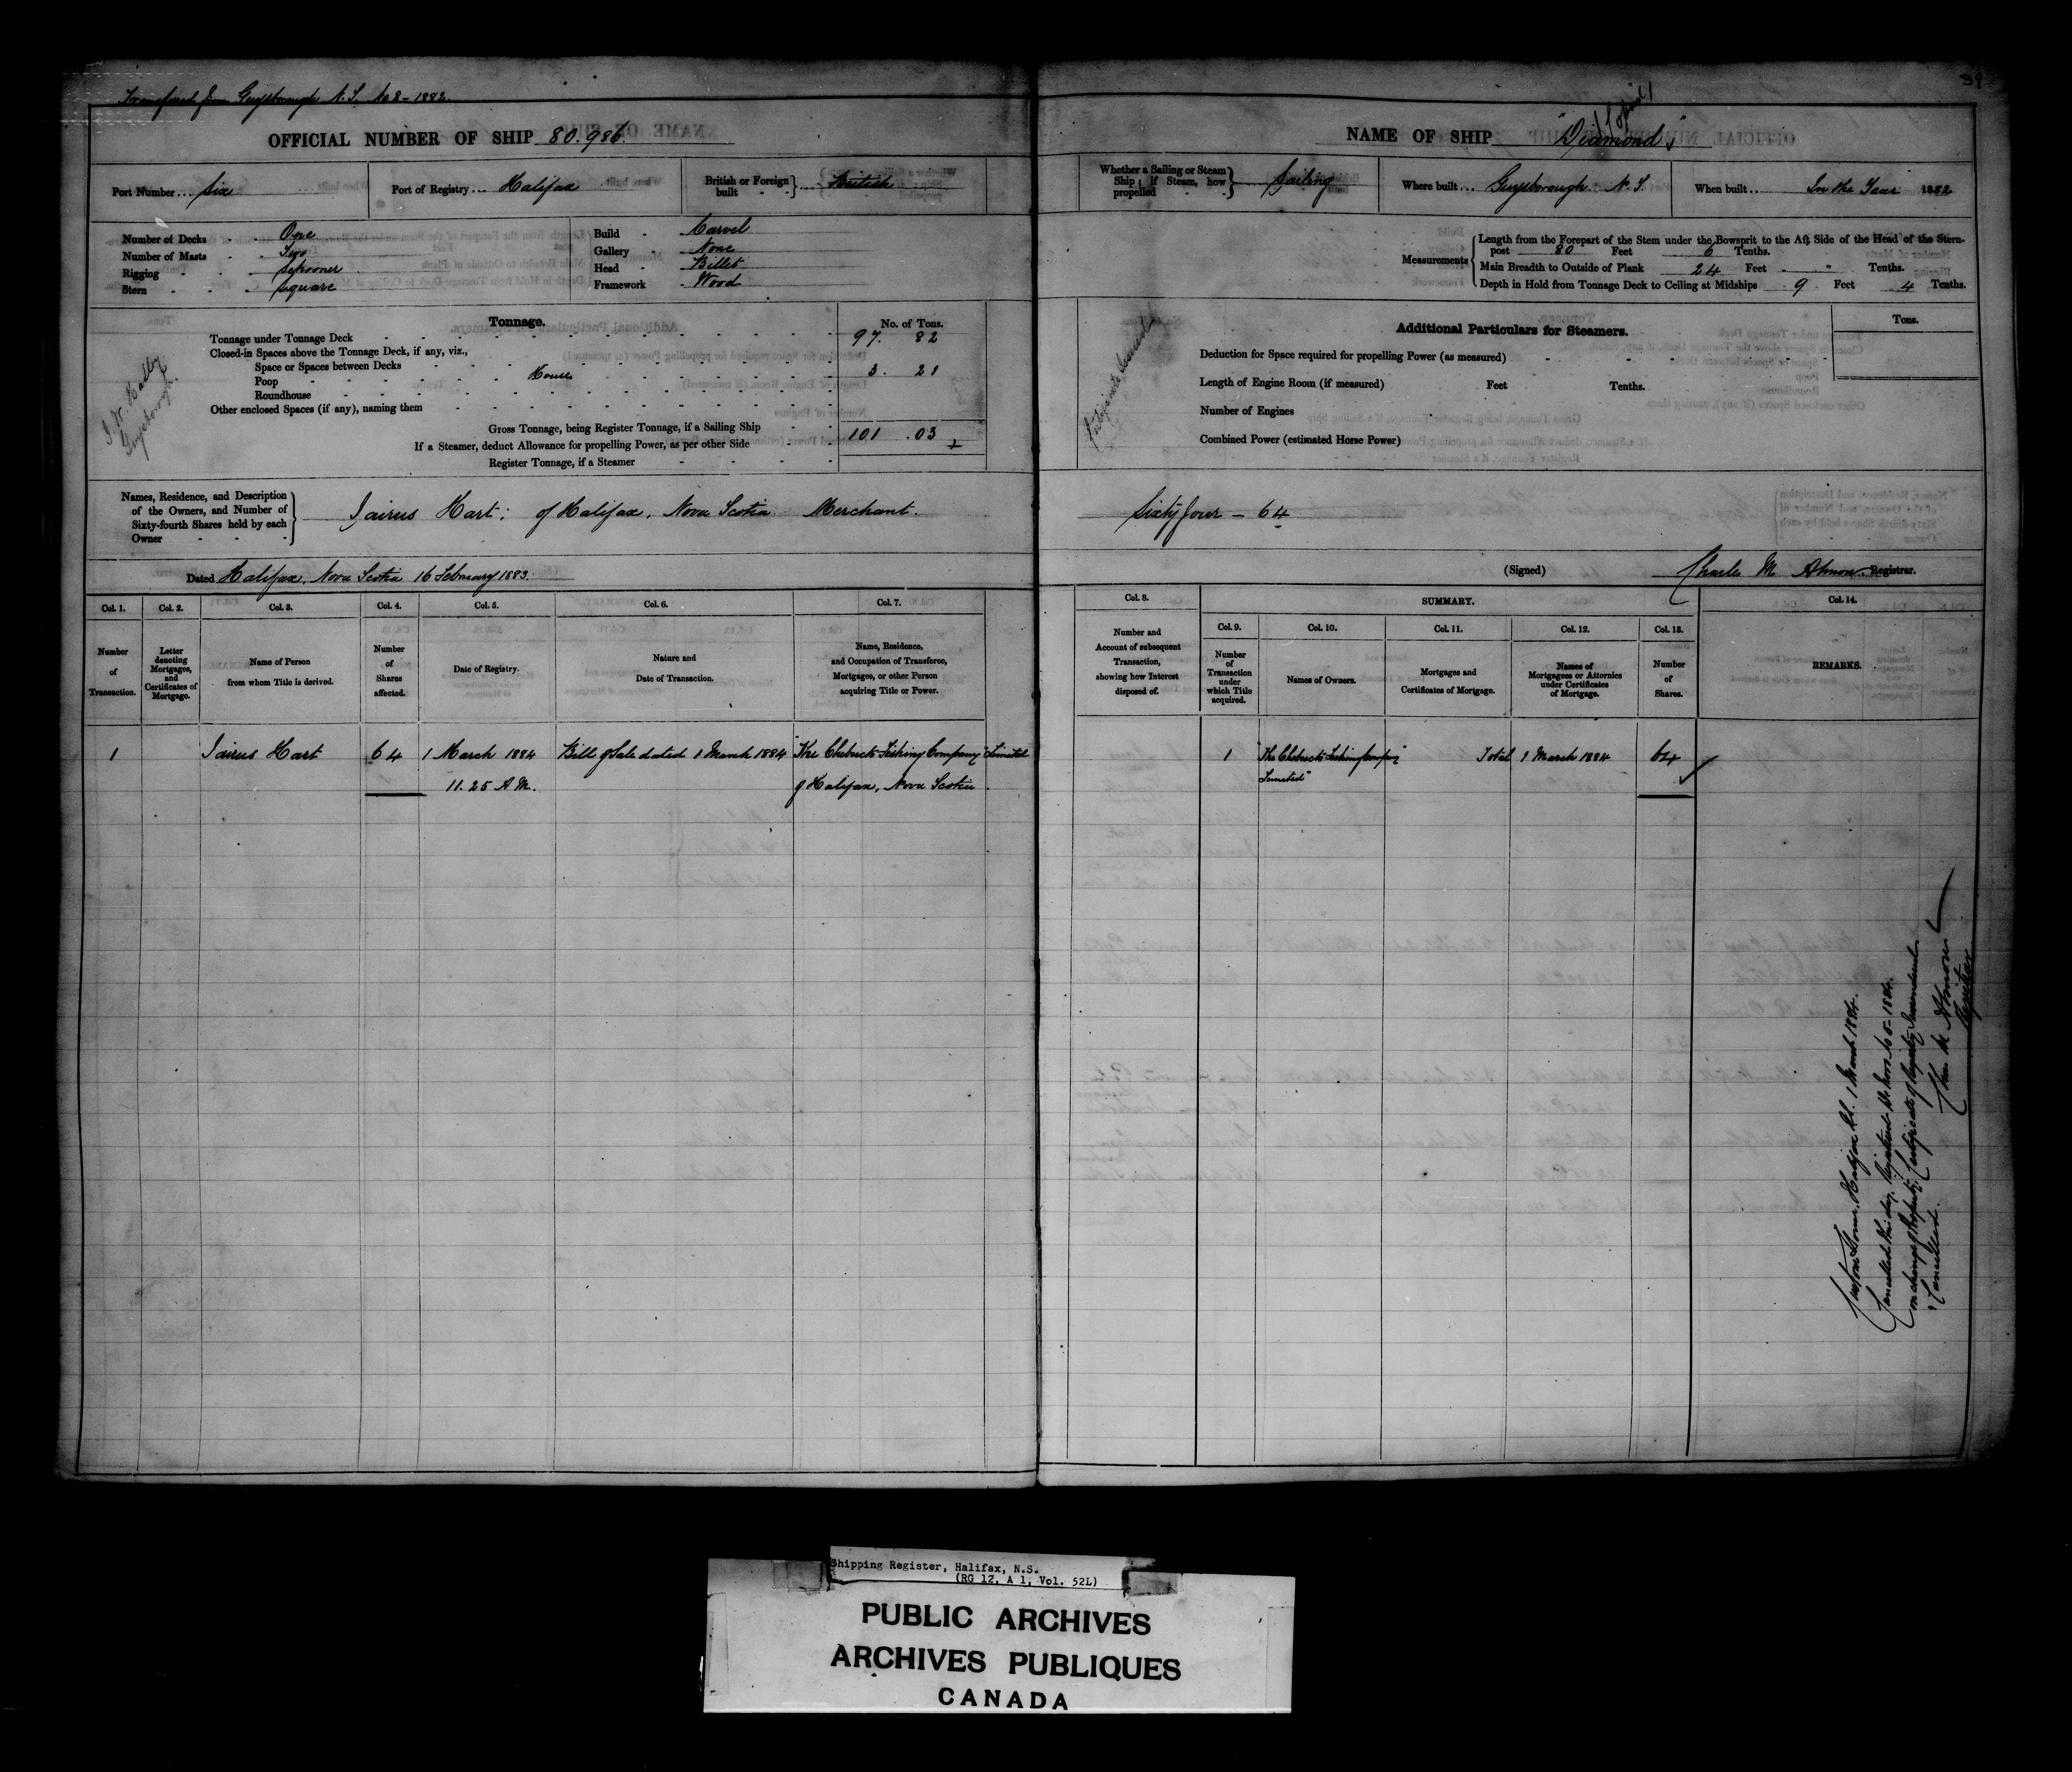 Transferred from Guysborough N.S. No 2 - 1882.
39
OFFICIAL NUMBER OF SHIP 80.986.
Port Number ... Six
Port of Registry ... Halifax
British or Foreign built } ... British
Number of Decks - One
Number of Masts - Two
Rigging - Schooner
Stern - Square
Build - Carvel
Gallery - None
Head - Billet
Framework - Wood
Tonnage.
No. of Tons.
Tonnage under Tonnage Deck 97. 82
Closed-in Spaces above the Tonnage Deck, if any, viz.,
Space or Spaces between Decks
Poop House 3. 21
Roundhouse
Other enclosed Spaces (if any), naming them
Gross Tonnage, being Register Tonnage, if a Sailing Ship 101 .03
If a Steamer, deduct Allowance for propelling Power, as per other Side
Register Tonnage, if a Steamer
Guysborough
Names, Residence, and Description of the Owners, and Number of Sixty-fourth Shares held by each Owner } Jairus Hart; of Halifax, Nova Scotia Merchant.
Dated Halifax, Nova Scotia 16 February 1883.
NAME OF SHIP "Diamond"
Whether a Sailing or Steam Ship; if Steam, how propelled } Sailing
Where built ... Guysborough N.S.
When built .. In the Year 1882
Measurements { Length from the Forepart of the Stem under the Bowsprit to the Aft Side of the Head of the Stern-
post 80 Feet 6 Tenths.
Main Breadth to Outside of Plank 24 Feet " Tenths.
Depth in Hold from Tonnage Deck to Ceiling at Midships 9 Feet 4 Tenths.
Additional Particulars for Steamers.
Tons.
Deduction for Space required for propelling Power (as measured)
Length of Engine Room (if measured) Feet Tenths.
Number of Engines
Combined Power (estimated Horse Power)
Sixty four - 64
(Signed) Charles M Almon Registrar.
Col. 1. Col. 2. Col. 3. Col. 4. Col. 5. Col. 6. Col. 7.
Number of Transaction.
Letter denoting Mortgages, and Certificates of Mortgage.
Name of Person from whom Title is derived.
Number of Shares affected.
Date of Registry.
Nature and Date of Transaction.
Name, Residence, and Occupation of Transferee, Mortgagee, or other Person acquiring Title or Power.
1 Jairus Hart 64 1 March 1884 Bill of Sale dated 1 March 1884 "The Chebucto Fishing Company Limited"
11.25 A.M. of Halifax, Nova Scotia.
Col. 8.
SUMMARY.
Col. 14.
Col. 9. Col. 10. Col. 11. Col. 12. Col. 13.
Number and Account of subsequent Transaction, showing how Interest disposed of.
Number of Transaction under which Title acquired.
Names of Owners.
Mortgages and Certificates of Mortgage.
Names of Mortgagees or Attornies under Certificates of Mortgage.
Number of Shares.
REMARKS.
1 "The Chebucto Fishing Company Total 1 March 1884 64
Limited"
Custom House, Halifax N.S. 1 March 1884.
Cancelled this day, Registered de novo No 5 - 1884.
on change of Property, Certificate of Registry Surrendered
& Cancelled.
Chas M Almon
Registrar
Shipping Register, Halifax, N.S.
(RG 12, A 1, Vol. 52L)
PUBLIC ARCHIVES
ARCHIVES PUBLIQUES
CANADA